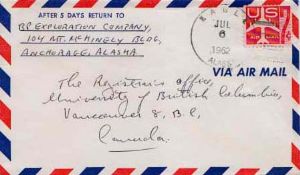 AFTER 5 DAYS RETURN TO
B.P. EXPLORATION COMPANY,
104 MT. McKINELY BLDG,
ANCHORAGE, ALASKA
EAGLE
JUL
6
1962
ALASKA
U.S.
7¢
AIR MAIL
VIA AIR MAIL
The Registrars office,
University of British Columbia,
Vancouver 8, B.C,
Canada.